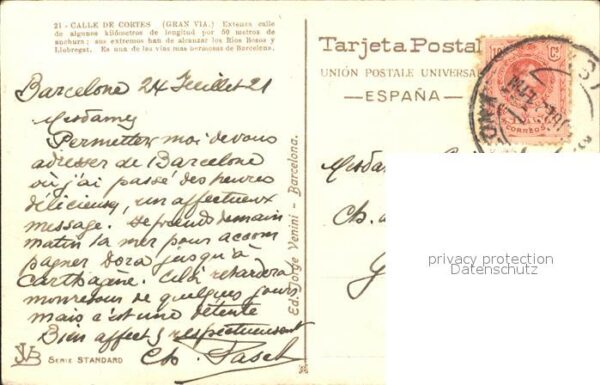 21 - CALLE DE CORTES (GRAN VIA.) Extensa calle
de algunos kilómetros de longitud por 50 metros de
anchura; sus extremos han de alcanzar los Ríos Besos y
Llobregat. Es una de las vias mas hermosas de Barcelona.
Barcelona 24 Juillet 21
Mesdames
Permettez moi de vous
adresser de Barcelone
où j'ai passé des heures
délicieuses, un affectueux
message. Je prends demain
matin la mer pour accom
pagner Dora jusqu'à
Carthagène. Cela retardera
mon retour de quelques jours
mais c'est une détente
Bien affect & respectueusement
Ch. Pasel
JVB SERIE STANDARD
Ed. Jorge Venini - Barcelona.
Tarjeta Postal
UNIÓN POSTALE UNIVERSA
—ESPAÑA—
10 Cs
CORREOS
Mesdam
Ch.
privacy protection
Datenschutz